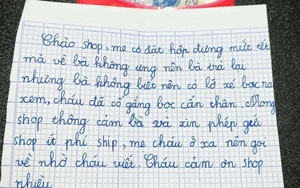 Chào shop, mẹ có đặt hộp đựng mứt tết
mà về bà không ưng nên bà trả lại
nhưng bà không biết nên có lỡ xé bọc ra
xem, cháu đã cố gắng bọc cẩn thận. Mong
shop thông cảm bà và xin phép gửi
shop ít phí ship, mẹ cháu ở xa nên gọi
về nhờ cháu viết. Cháu cảm ơn shop
nhiều